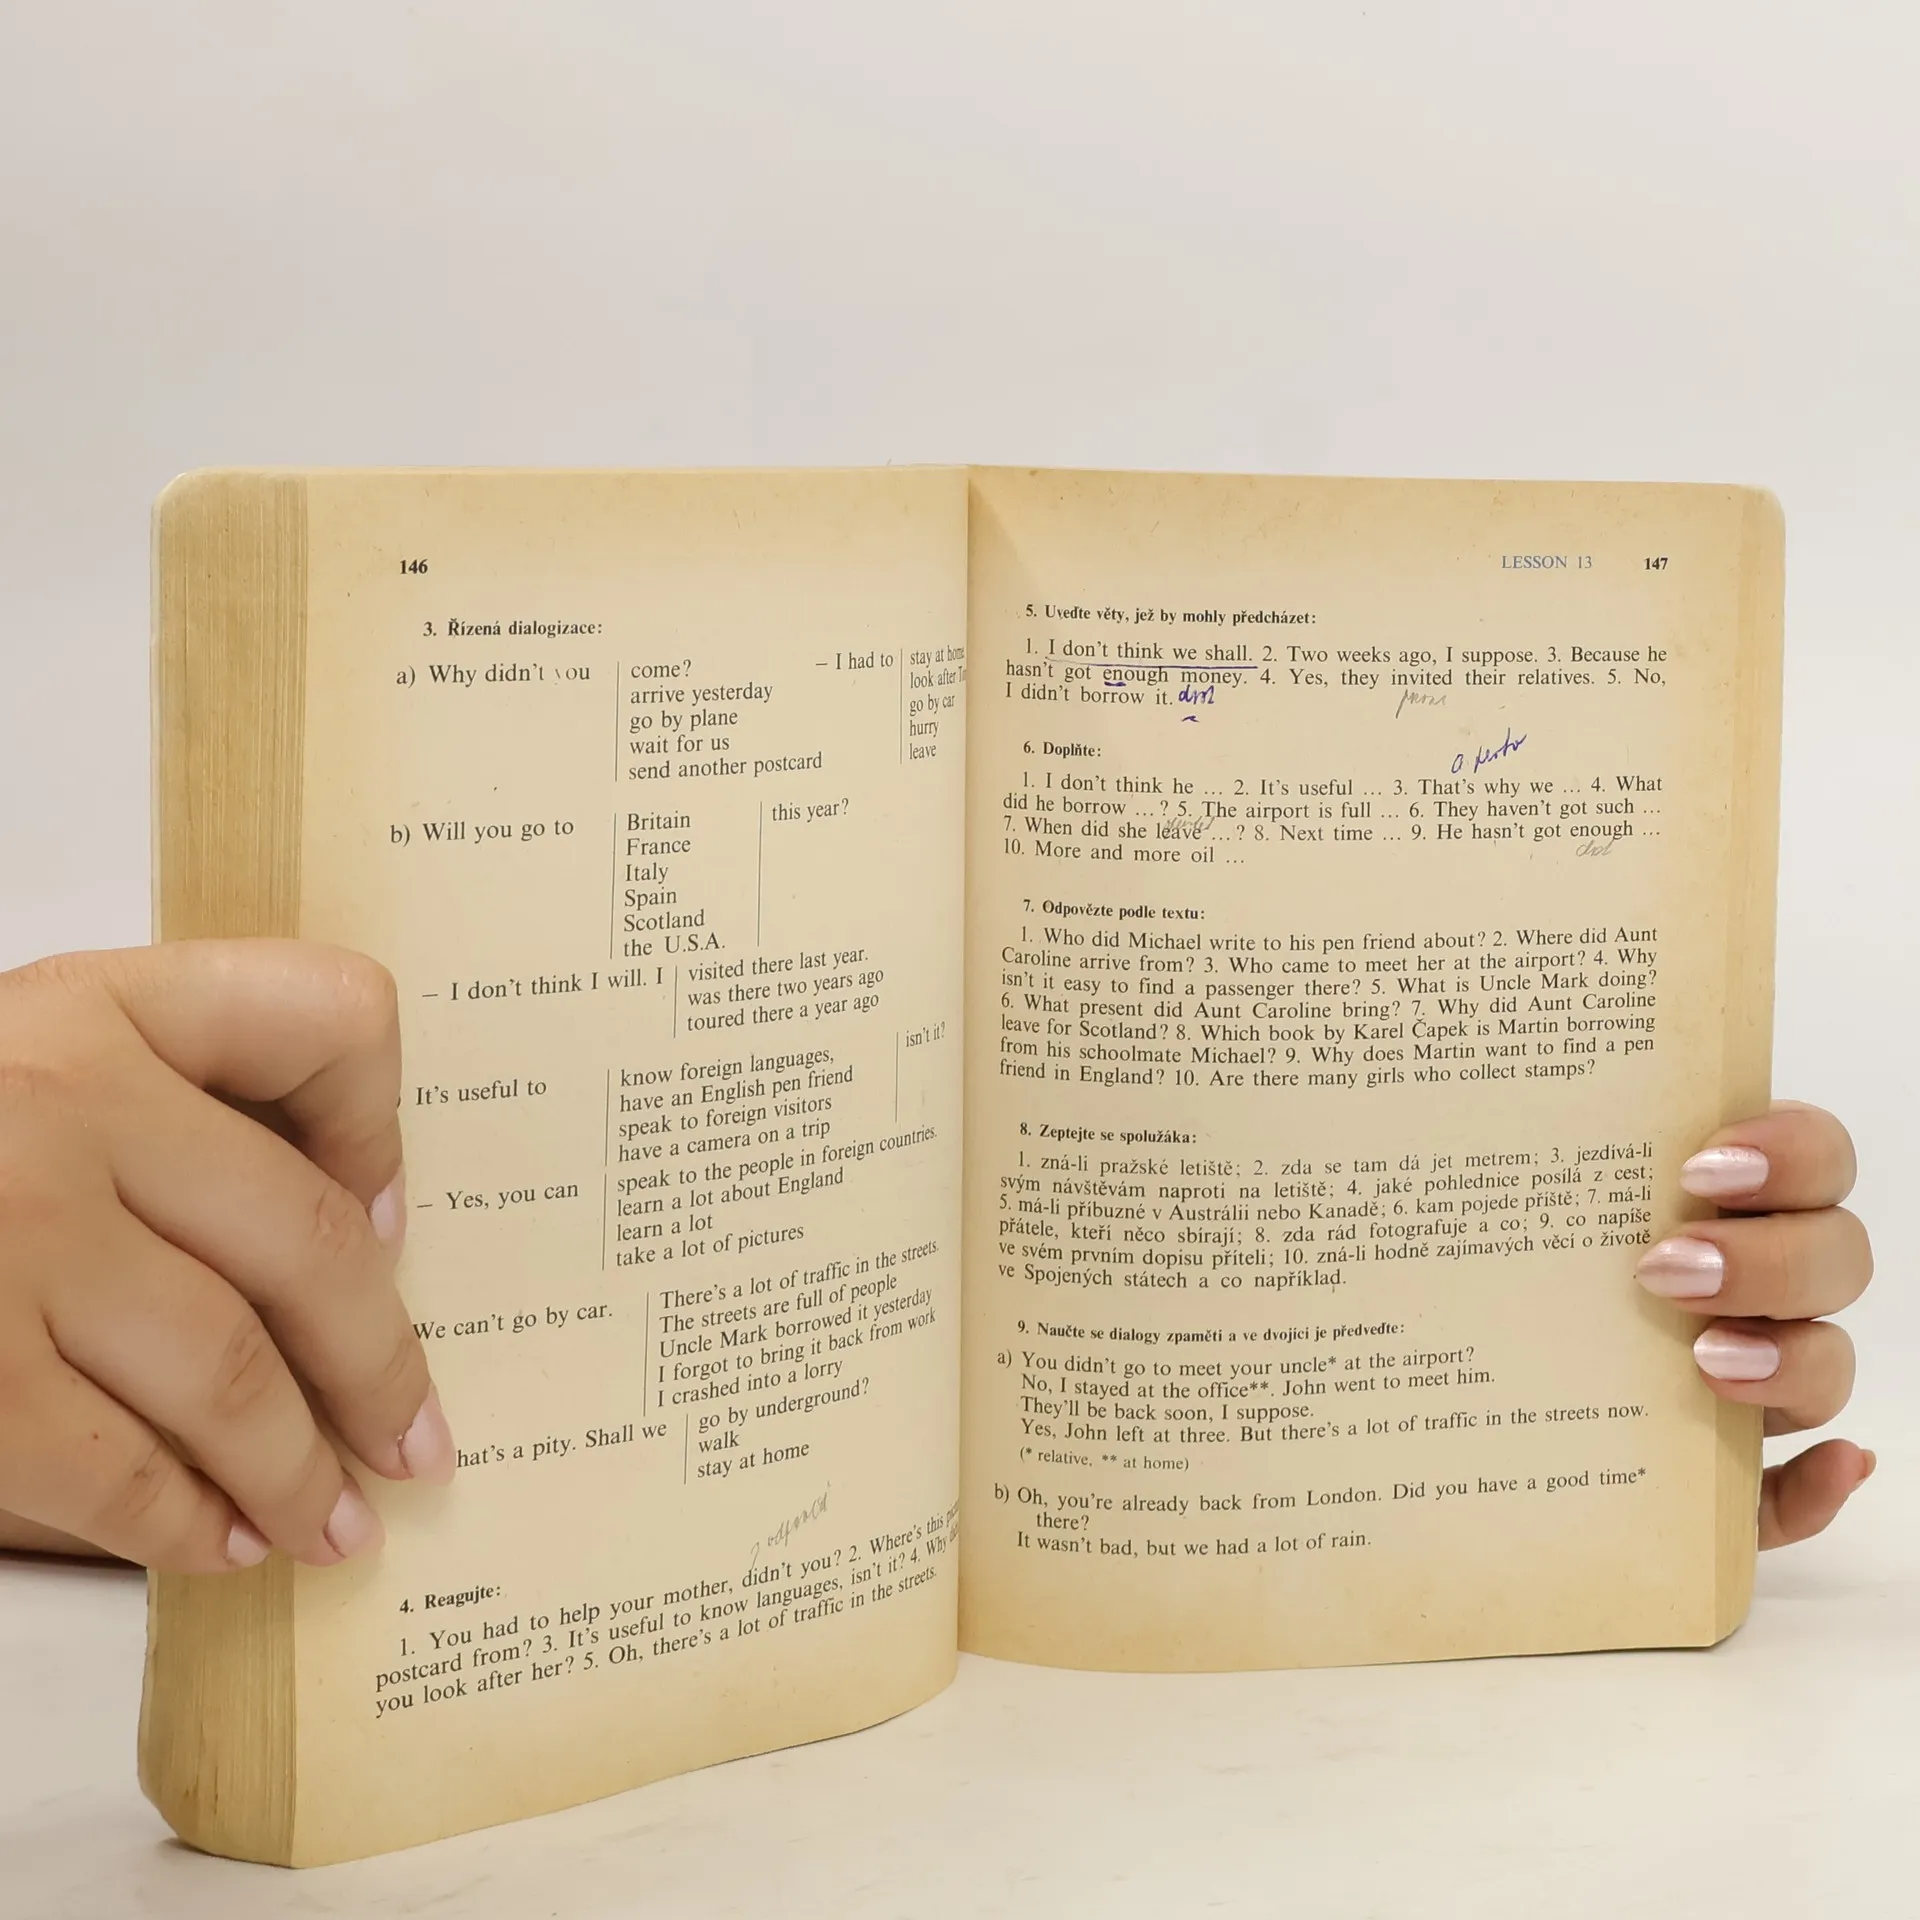 146
3. Řízená dialogizace:
a) Why didn't you come? – I had to stay at home
arrive yesterday look after
go by plane go by car
wait for us hurry
send another postcard leave
b) Will you go to Britain this year?
France
Italy
Spain
Scotland
the U.S.A.
– I don't think I will. I visited there last year.
was there two years ago
toured there a year ago
It's useful to know foreign languages, isn't it?
have an English pen friend
speak to foreign visitors
have a camera on a trip
– Yes, you can speak to the people in foreign countries.
learn a lot about England
learn a lot
take a lot of pictures
We can't go by car. There's a lot of traffic in the streets.
The streets are full of people
Uncle Mark borrowed it yesterday
I forgot to bring it back from work
I crashed into a lorry
hat's a pity. Shall we go by underground?
walk
stay at home
4. Reagujte:
1. You had to help your mother, didn't you? 2. Where's this
postcard from? 3. It's useful to know languages, isn't it? 4. Why
you look after her? 5. Oh, there's a lot of traffic in the streets.
LESSON 13 147
5. Uveďte věty, jež by mohly předcházet:
1. I don't think we shall. 2. Two weeks ago, I suppose. 3. Because he
hasn't got enough money. 4. Yes, they invited their relatives. 5. No,
I didn't borrow it.
6. Doplňte:
1. I don't think he ... 2. It's useful ... 3. That's why we ... 4. What
did he borrow ...? 5. The airport is full ... 6. They haven't got such ...
7. When did she leave ...? 8. Next time ... 9. He hasn't got enough ...
10. More and more oil ...
7. Odpovězte podle textu:
1. Who did Michael write to his pen friend about? 2. Where did Aunt
Caroline arrive from? 3. Who came to meet her at the airport? 4. Why
isn't it easy to find a passenger there? 5. What is Uncle Mark doing?
6. What present did Aunt Caroline bring? 7. Why did Aunt Caroline
leave for Scotland? 8. Which book by Karel Čapek is Martin borrowing
from his schoolmate Michael? 9. Why does Martin want to find a pen
friend in England? 10. Are there many girls who collect stamps?
8. Zeptejte se spolužáka:
1. zná-li pražské letiště; 2. zda se tam dá jet metrem; 3. jezdívá-li
svým návštěvám naproti na letiště; 4. jaké pohlednice posílá z cest;
5. má-li příbuzné v Austrálii nebo Kanadě; 6. kam pojede příště; 7. má-li
přátele, kteří něco sbírají; 8. zda rád fotografuje a co; 9. co napíše
ve svém prvním dopisu příteli; 10. zná-li hodně zajímavých věcí o životě
ve Spojených státech a co například.
9. Naučte se dialogy zpaměti a ve dvojici je předveďte:
a) You didn't go to meet your uncle* at the airport?
No, I stayed at the office**. John went to meet him.
They'll be back soon, I suppose.
Yes, John left at three. But there's a lot of traffic in the streets now.
(* relative, ** at home)
b) Oh, you're already back from London. Did you have a good time*
there?
It wasn't bad, but we had a lot of rain.